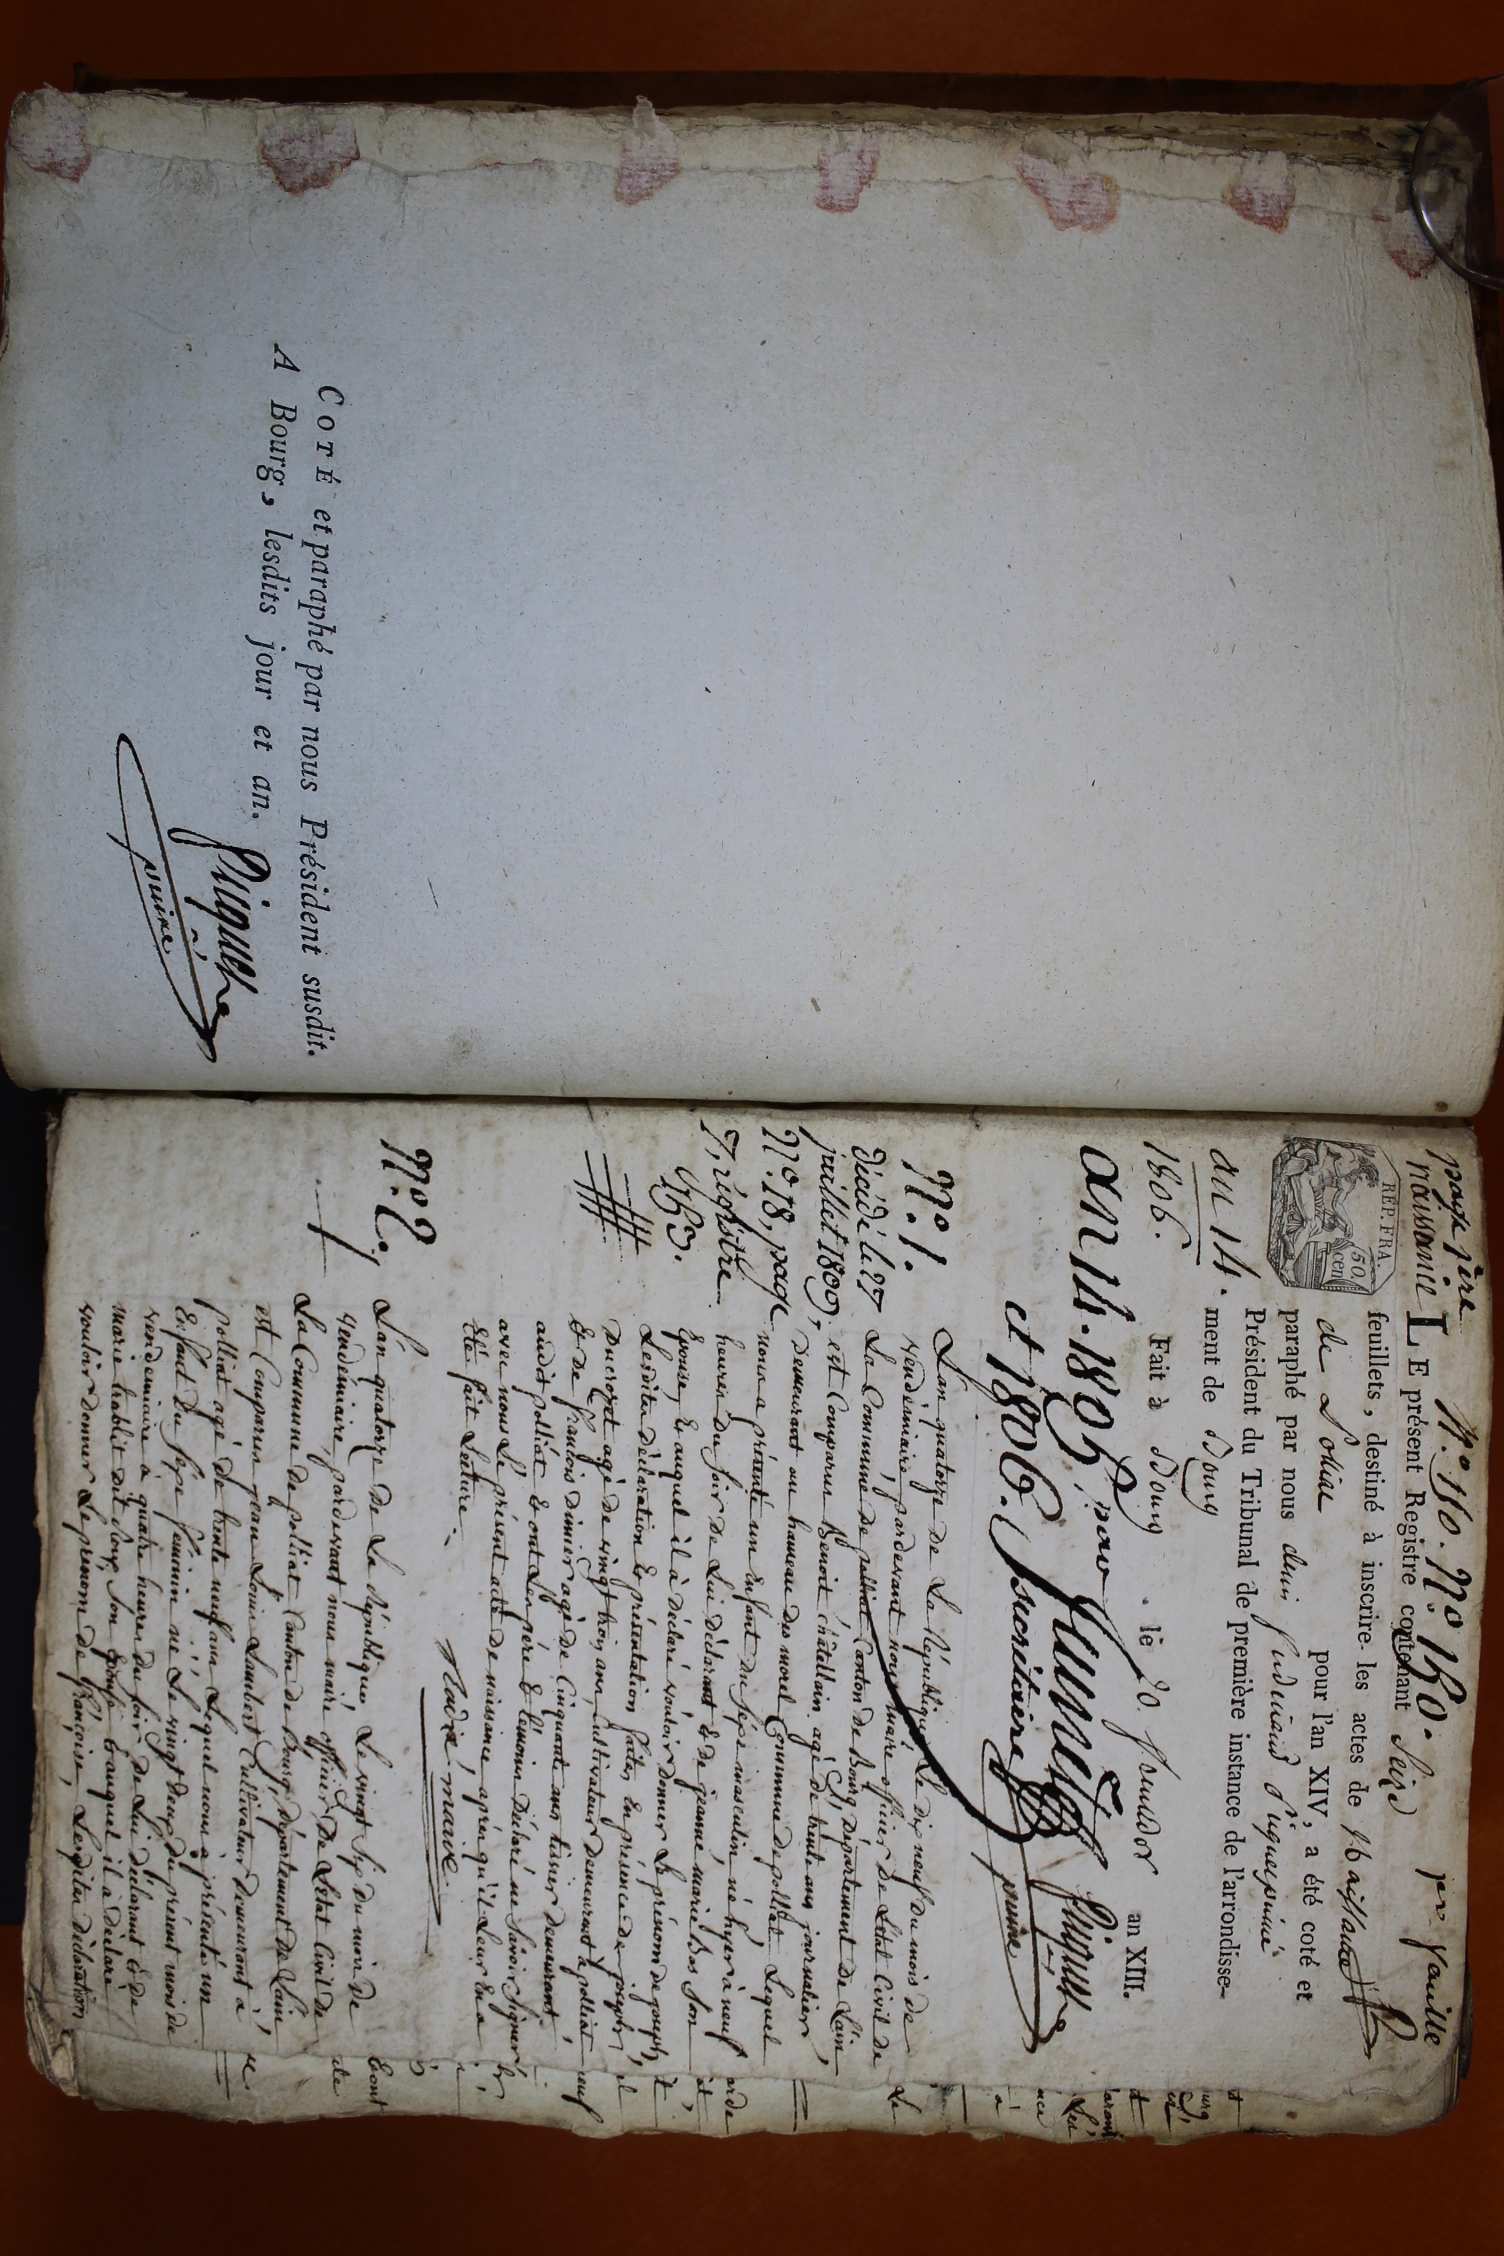 Coté et paraphé par nous Président susdit.
A Bourg, lesdits jour et an.
Piquet
puiné
page 1ère
naissance
REP. FRA.
50.
cen
au 14.
1806.
N.º 150.
Le présent Registre contenant Seize
feuillets, destiné à inscrire les actes de Naissance
de Polliat pour l'an XIV, a été coté et
paraphé par nous
Président du Tribunal de première instance de l'arrondisse-
ment de Bourg
Fait à Bourg, le 20 fructidor an XIII.
an 14. 1805
et 1806. secrétaire
Piquet
puiné
N.º 1.
décédé le 27
juillet 1809,
N.º 18, page
7, régistre
153.
L'an quatorze de La République Le dix neuf du mois de
vendémiaire, pardevant nous maire officier de L'état Civil de
La Commune de polliat Canton de Bourg Département de L'ain
est Comparu Benoit châtellain agé de trente ans journalier,
Demeurant au hameau du morel Commune de polliat, Lequel
nous a présenté un Enfant du Sexe masculin né hyer à neuf
heures du soir de Lui déclarant & de jeanne marie Bas Son
Epouse, & auquel il à déclaré vouloir donner Le prénom de joseph,
Lesdites déclaration & présentation faites En présence de joseph
Ducrozet agé de vingt trois ans, Cultivateur Demeurant à polliat
& de françois dimier agé de Cinquante ans tissier demeurant
audit polliat & ont Les père & témoins Déclaré ne Savoir Signer
avec nous Le présent acte de naissance, après qu'il Leur En a
été fait Lecture.
maire
N.º 2,
L'an quatorze de La République, Le vingt Six du mois de
vendémiaire, pardevant nous maire officier De L'état Civil de
La Commune de polliat Canton de Bourg, Département de L'ain
est Comparu jean Louis Lambert Cultivateur Demeurant à
polliat agé de trente neuf ans Lequel nous à présenté un
Enfant Du Sexe féminin né Le vingt deux du présent mois de
vendémiaire à quatre heures du soir de Lui déclarant & de
marie Son Epouse & auquel il à déclaré
vouloir donner Le prénom de françoise, Lesdites déclaration